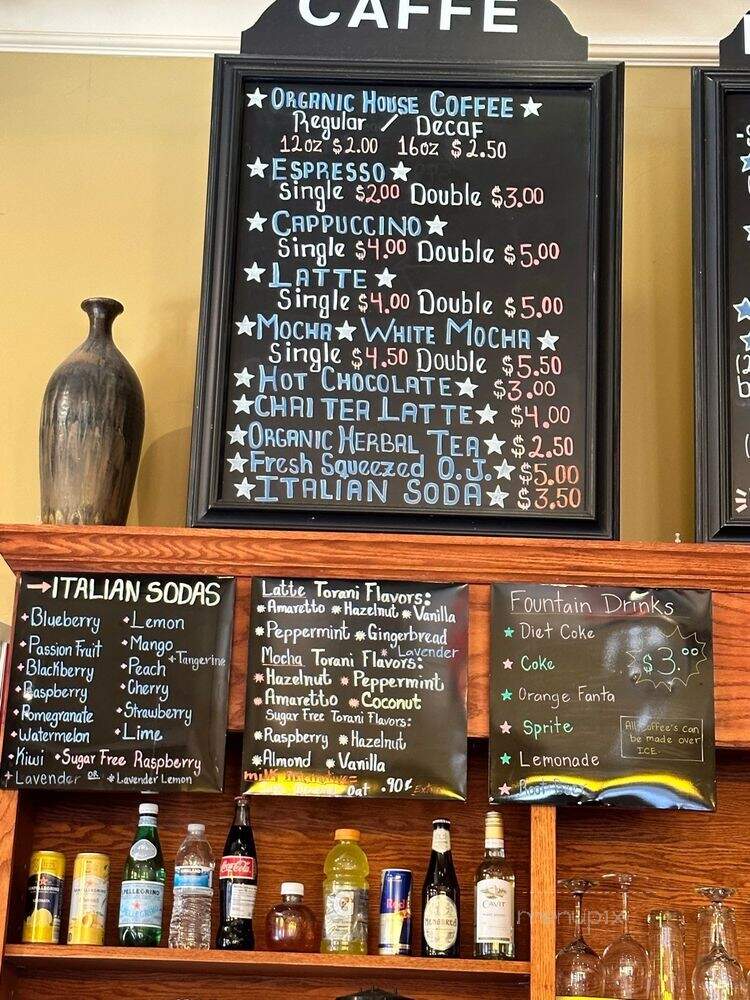 CAFFE
★ ORGANIC HOUSE COFFEE ★
Regular / Decaf
12oz $2.00 16oz $2.50
★ ESPRESSO ★
Single $2.00 Double $3.00
★ CAPPUCCINO ★
Single $4.00 Double $5.00
★ LATTE ★
Single $4.00 Double $5.00
★ MOCHA ★ WHITE MOCHA ★
Single $4.50 Double $5.50
★ HOT CHOCOLATE ★ $3.00
★ CHAI TEA LATTE ★ $4.00
★ ORGANIC HERBAL TEA ★ $2.50
★ Fresh Squeezed O.J. ★ $5.00
★ ITALIAN SODA ★ $3.50
→ITALIAN SODAS
Blueberry
Passion Fruit
Blackberry
Raspberry
Pomegranate
Watermelon
Kiwi
Lemon
Mango
Tangerine
Peach
Cherry
Strawberry
Lime
Sugar Free Raspberry
Lavender OR Lavender Lemon
Latte Torani Flavors:
Amaretto Hazelnut Vanilla
Peppermint Gingerbread
Lavender
Mocha Torani Flavors:
Hazelnut Peppermint
Amaretto Coconut
Sugar Free Torani Flavors:
Raspberry Hazelnut
Almond Vanilla
milk
Oat .90¢ Extra
Fountain Drinks
Diet Coke
Coke
$3.00
Orange Fanta
Sprite
All Coffee's can
be made over
ICE.
Lemonade
Root Beer
S.PELLEGRINO
Coca-Cola
CAVIT
menupix